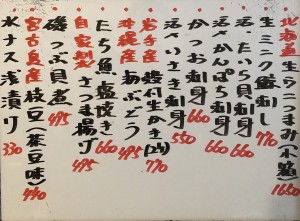 北海道生うにつまみ(小箱) 1650
生ミンク鯨刺し 770
活〆いたちら刺身 660
活〆かんぱち刺身 660
かつお刺身 660
活〆いさき刺身 550
岩手産殻付生かき(2ヶ) 770
沖縄産海ぶどう 495
たち魚塩焼き 660
自家製さつま揚げ 495
磯つぶ貝煮 495
宮古島産枝豆(茶豆味) 440
水ナス浅漬け 330